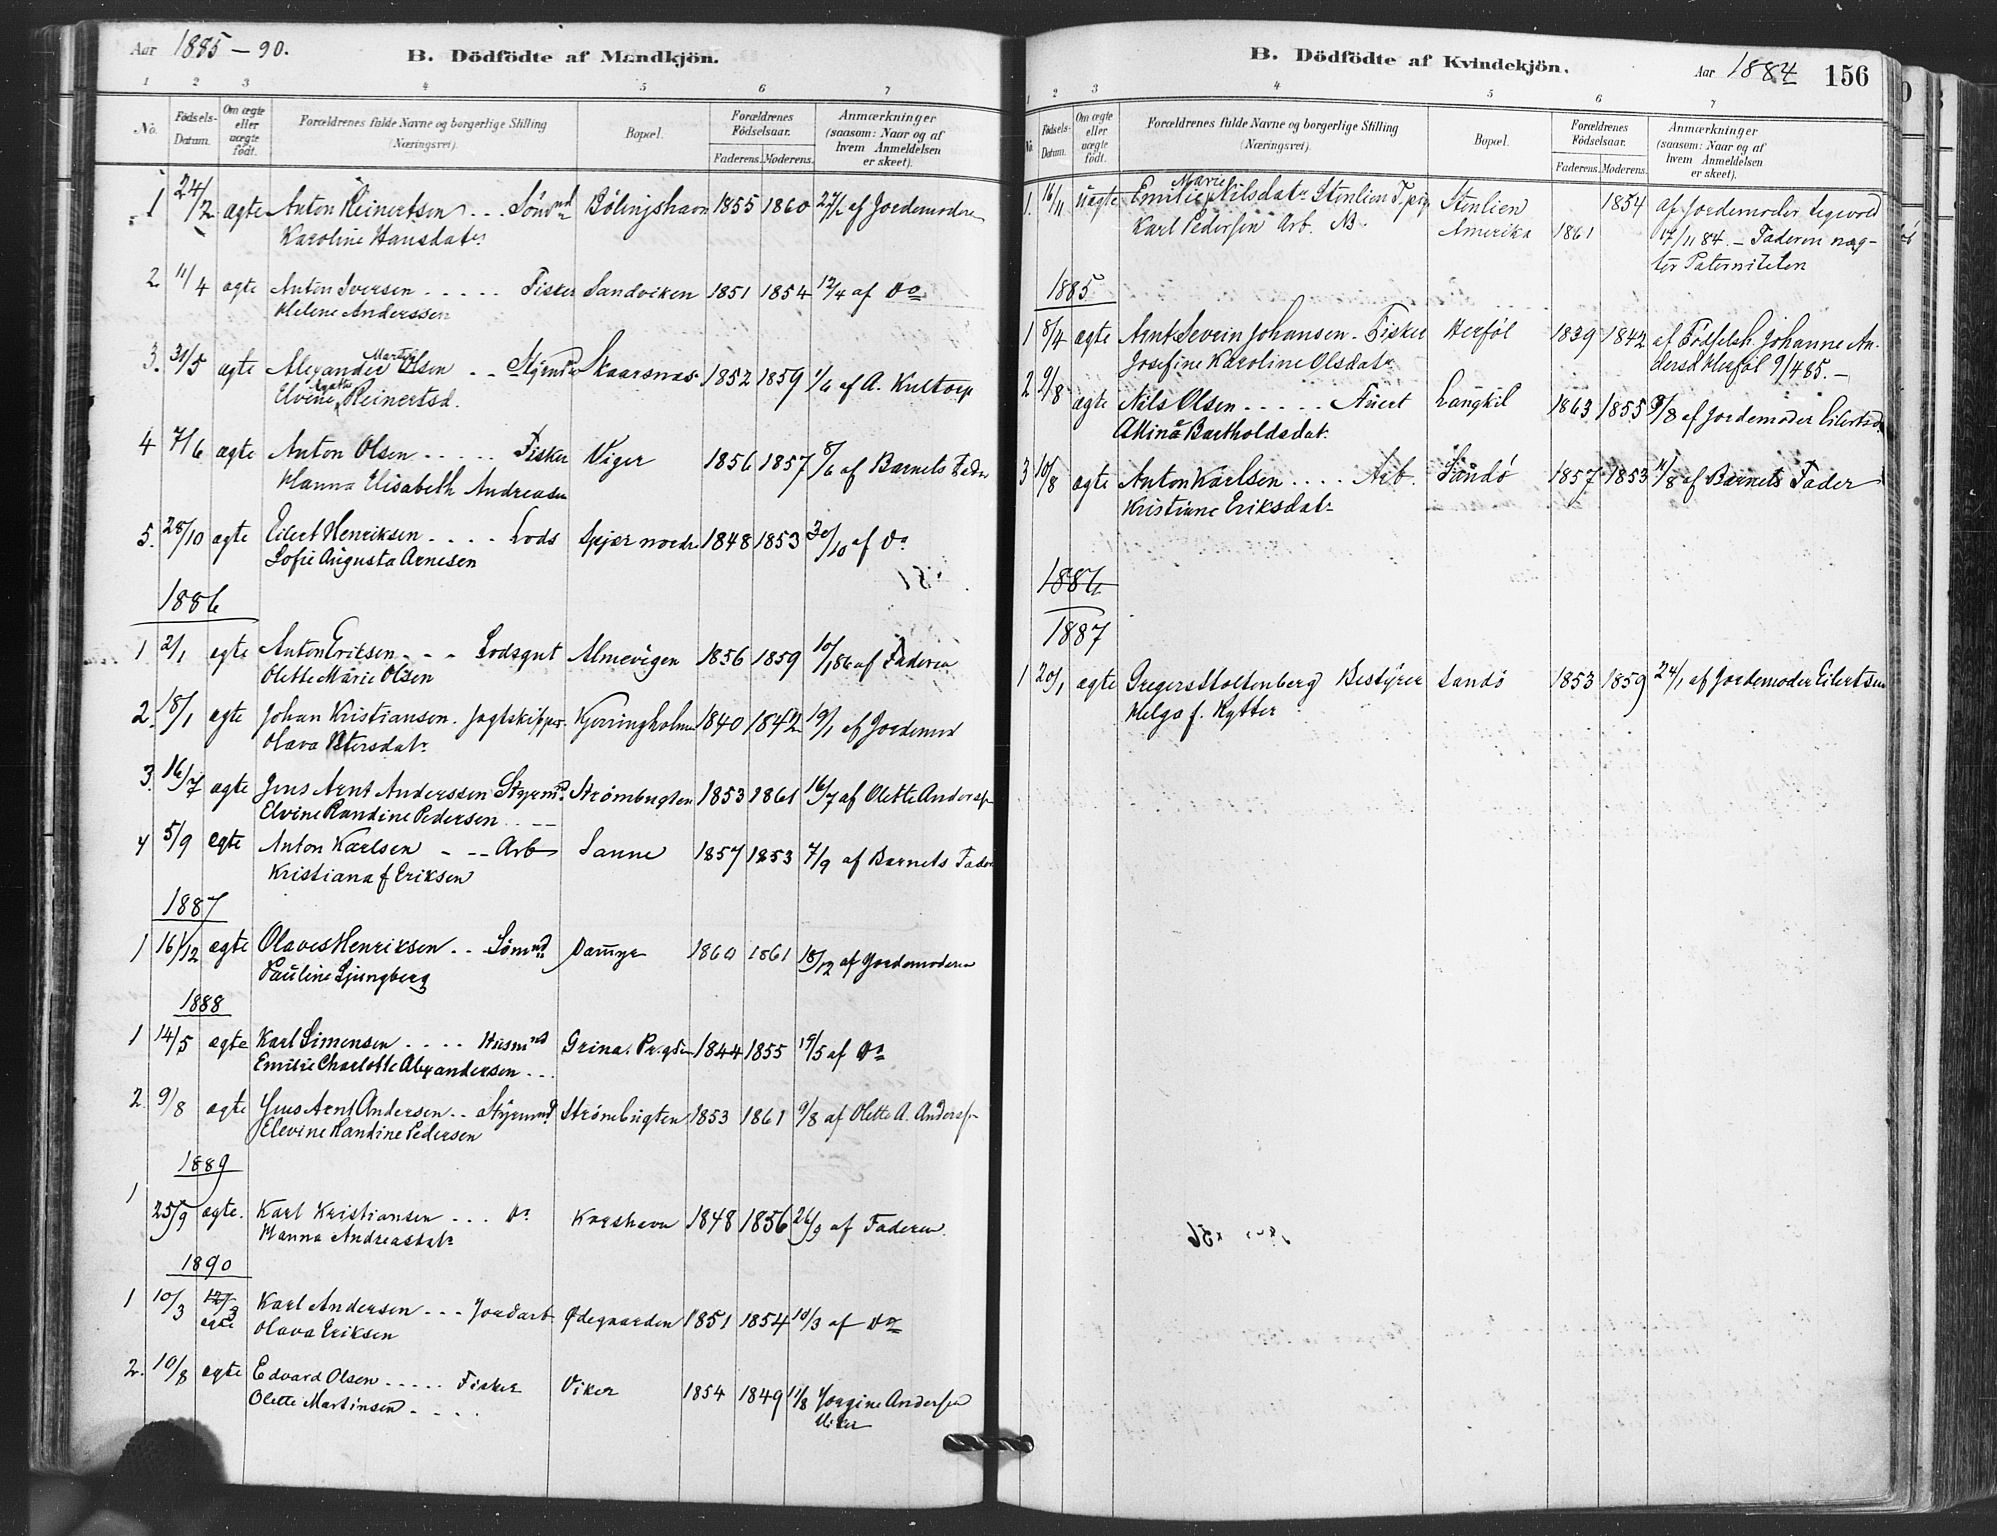 Aar 1885-90.
B. Dödfödte af Mandkjön.
1 2 3 4 5 6 7
No.
Födsels-Datum.
Om ægte eller uægte födt.
Forældrenes fulde Navne og borgerlige Stilling (Næringsvei).
Bopæl.
Forældrenes Födselsaar.
Faderens. Moderens.
Anmærkninger (saasom: Naar og af hvem Anmeldelsen er skeet).
1 24/2 ægte Anton Reinertsen Sömd Bölingshavn 1855 1860 27/2 af Jordemoderen
Karoline Hansdatr
2 11/4 ægte Anton Iversen Fisker Sandviken 1851 1854 12/4 af Do
Helene Anderssen
3. 31/5 ægte Alexander Martin Olsen Styrmd Skaarsnas 1852 1859 1/6 af A. Kultorp
Elvine Agathe Reinertsd.
4 7/6 ægte Anton Olsen Fisker Viger 1856 1857 8/6 af Barnets Fader
Hanna Elisabeth Andreasen
5. 28/10 ægte Eilert Henriksen Lods Spjær nordr 1848 1853 30/10 af Do
Sofie Augusta Arnesen
1886
1 2/1 ægte Anton Eriksen Lodsgut Almevigen 1856 1859 10/1 86 af Faderen
Olette Marie Olsen
2. 18/1 ægte Johan Kristiansen. Jagtskipper Kjerringholmen 1840 1842 19/1 af Jordemod
Olava Petersdatr
3. 16/7 ægte Jens Arnt Anderssen Styrmd. Strömbugten 1853 1861 16/7 af Olette Anders
Elvine Randine Pedersen
4 5/9 ægte Anton Karlsen Arb Sanne 1857 1853 7/9 af Barnets Fader
Kristiana f Eriksen
1887
1 16/12 ægte Olaves Henriksen Sömnd Dammyr 1860 1861 18/12 af Jordemoderen
Pauline Ljungberg
1888
1 14/5 ægte Karl Simensen Husmnd Grina. Pr.gden 1844 1855 19/5 af Do
Emilie Charlotte Alexandersen
2. 9/8 ægte Jens Arnt Andersen Styrmnd Strömbugten 1853 1861 9/8 af Olette A. Anders
Elevine Randine Pedersen
1889
1 25/9 ægte. Karl Kristiansen Do Korshavn 1848 1856 26/9 af Faderen.
Hanna Andreasdatr
1890
1 10/3 12/3 ægte Karl Andersen Jordarb Ödegaarden 1851 1854 10/3 af Do
Olava Eriksen
2. 10/8 ægte Edvard Olsen Fisker Viker 1854 1849 11/8 Jorgine Andersen
Olette Martinsen Viker
B. Dödfödte af Kvindekjön.
Aar 1884 156
1 2 3 4 5 6 7
No.
Födsels-Datum.
Om ægte eller uægte födt.
Forældrenes fulde Navne og borgerlige Stilling (Næringsvei).
Bopæl.
Forældrenes Födselsaar.
Faderens. Moderens.
Anmærkninger (saasom: Naar og af hvem Anmeldelsen er skeet).
1. 16/11 uægte Emilie Marie Nilsdatr Stenlien Tj.pig Stenlien 1854 af Jordemoder
Karl Pedersen Arb. Amerika 1861 17/11 84. - Faderen næg-
ter Paterniteten
1885
1 8/4 ægte Arnt Severin Johansen. Fisker Herföl 1839 1842 af Födselsh. Johanne An-
Josefine Karoline Olsdatr dersd Herföl 9/4 85. -
2 9/8 ægte Nils Olsen Langkil 1863 1855 9/8 af Jordemoder Eilertsen
Alina Bartholdsdatr
3 10/8 ægte Anton Karlsen Arb. Sandö 1857 1853 11/8 af Barnets Fader
Kristiane Eriksdatr
1886
1887
1 20/1 ægte Gregers Stoltenberg Bestyrer Sandö 1853 1859 24/1 af Jordemoder Eilertsen
Helga f. Rytter